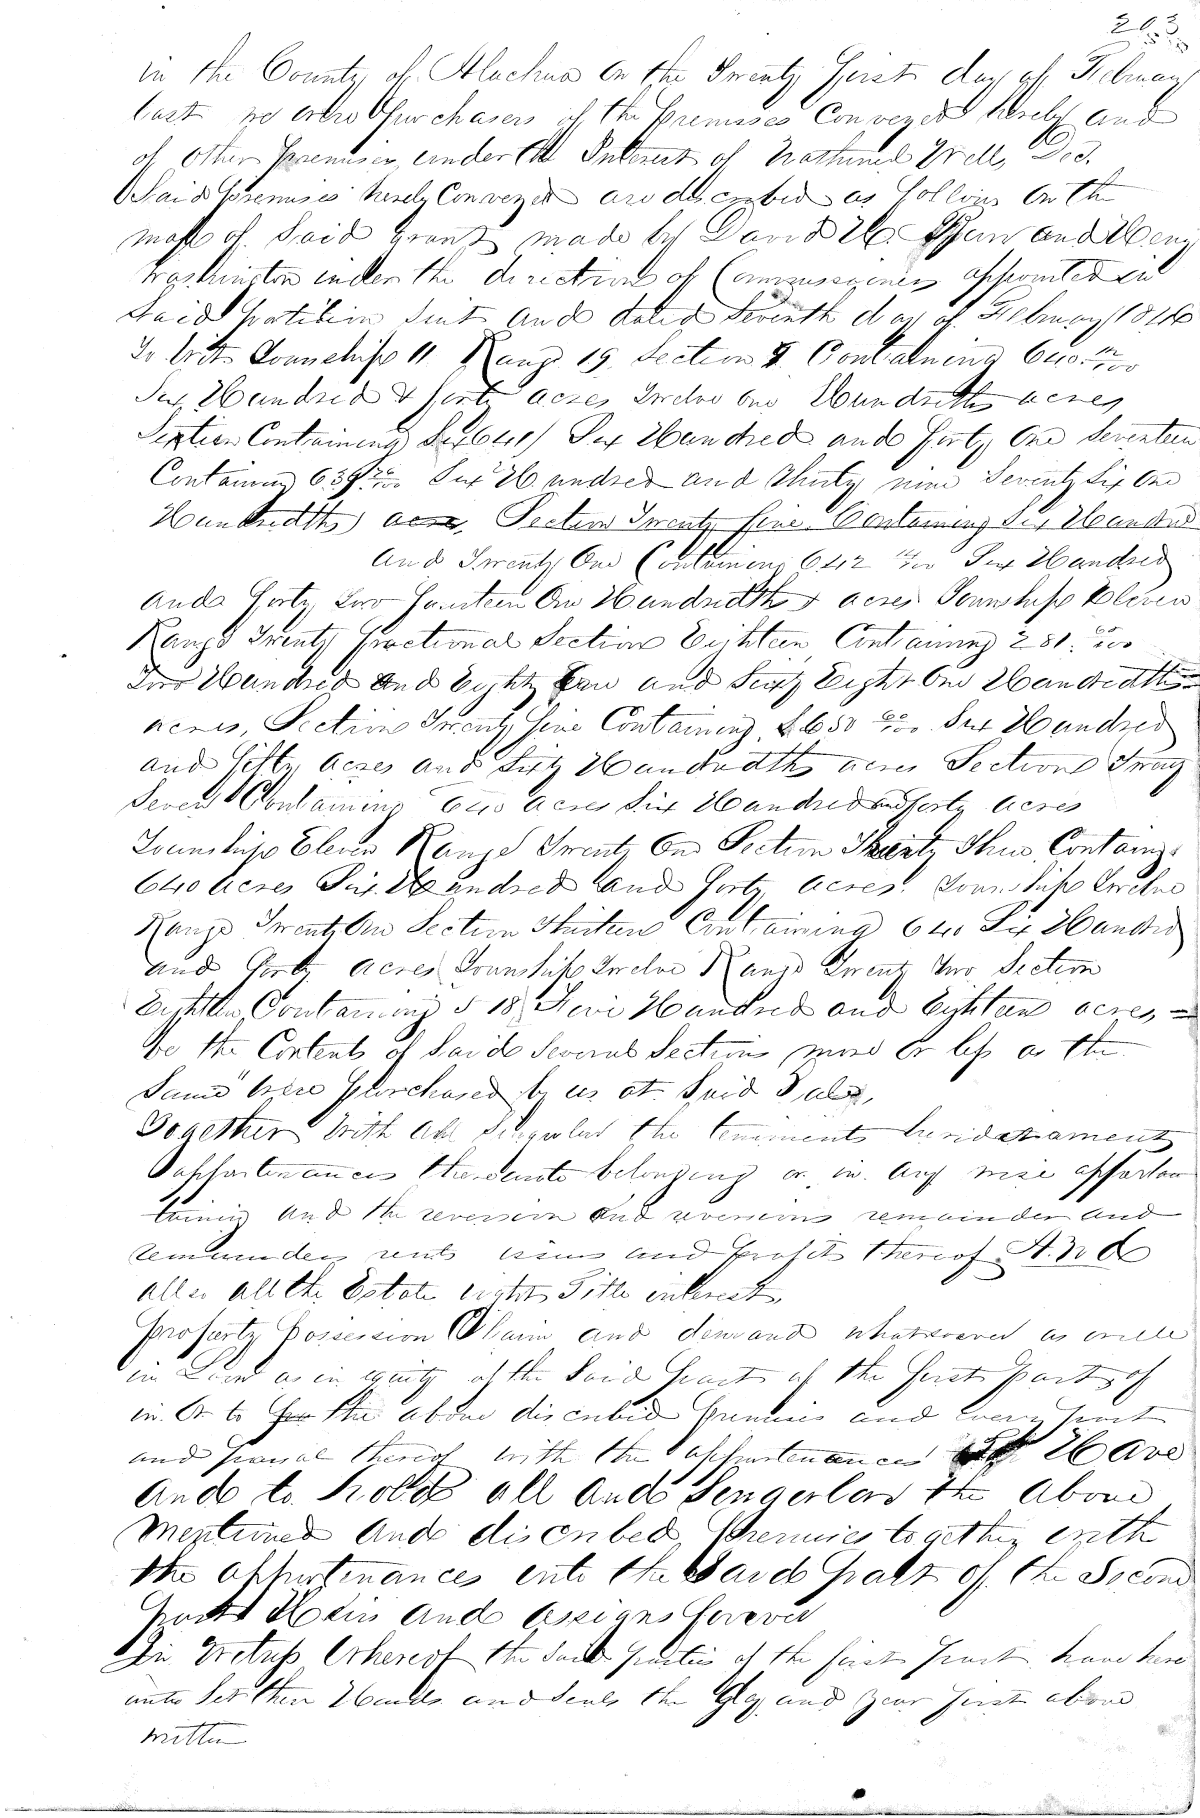 203
in the County of Alachua on the Twenty first day of February
last we were purchasers of the premises Conveyed hereby and
of other premises under the Interest of Nathaniel Wells Decd.
Said premises hereby Conveyed are described as follows on the
map of Said grant made by David H. Burr and Henry
Washington under the direction of Commissioners appointed in
Said partition Suit and dated Seventh day of February 1846
To Wit Township 11 Range 19 Section 9 Containing 640 12/100
Six Hundred & forty acres Twelve one Hundredths acres
Sixteen Containing Six 641/ Six Hundred and forty One Seventeen
Containing 639 76/100 Six Hundred and thirty nine Seventy Six One
Hundredths acres, Section Twenty five Containing Six Hundred
and Twenty One Containing 642 14/100 Six Hundred
and forty two fourteen One Hundredths acres Township Eleven
Range Twenty fractional Section Eighteen Containing 281 68/100
Two Hundred and Eighty one and Sixty Eight One Hundredths
acres, Section Twenty five Containing 650 60/100 Six Hundred
and fifty acres and Sixty Hundredths acres Section Twenty
Seven Containing 640 acres Six Hundred and forty acres
Township Eleven Range Twenty One Section Thirty Three Containg
640 acres Six Hundred and forty acres. Township Twelve
Range Twenty One Section Thirteen Containing 640 Six Hundred
and forty acres Township Twelve Range Twenty Two Section
Eighteen Containing 518 Five Hundred and Eighteen acres =
be the Contents of Said Several Sections more or less as the
Same were purchased by us at Said Sale,
Together With all Singular the tenements heridataments
appurtenances thereunto belonging or in any wise appertain
taining and the reversion and reversions remainder and
remainders rents issues and profits thereof And
also all the Estate right Title interest,
property possession Claim and demand whatsoever as well
in Law as in equity of the Said party of the first part, of
in Or to for the above discribed premises and every part
and parcel thereof with the appurtenances To Have
and to hold all and Sengerlar the above
mentioned and discribed premises together with
the appurtenances unto the Said part of the Second
part Heirs and assigns forever
In Witness Whereof the Said parties of the first part have here
unto Set their Hands and Seals the Day and year first above
written